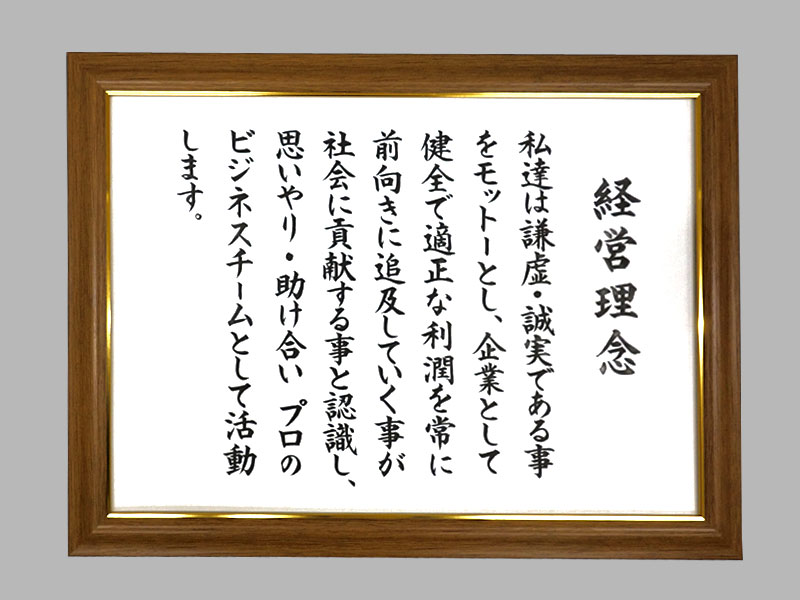 経営理念
私達は謙虚・誠実である事
をモットーとし、企業として
健全で適正な利潤を常に
前向きに追及していく事が
社会に貢献する事と認識し、
思いやり・助け合い プロの
ビジネスチームとして活動
します。